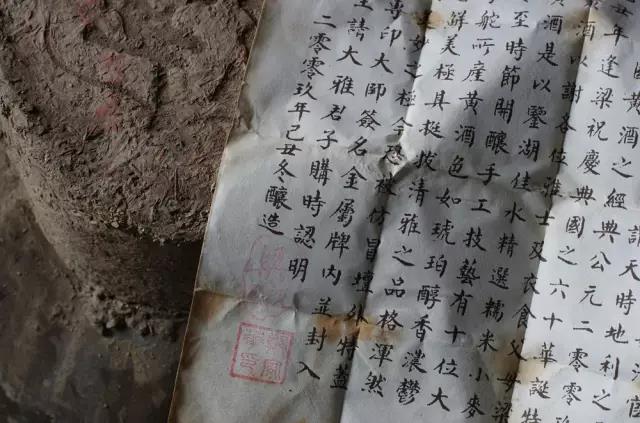 天時地利之
黄酒之經典公元二零零玖
丑年逢梁祝慶典國之六十華誕特
酒以謝各位雅士及衣食父母梁
酒是以鑒湖佳水精選糯米小麥
至時節開釀手工技藝有十位大
舵所產黄酒色如琥珀醇香濃鬱
鮮美極具挺拔清雅之品格渾然
如之極今恐被仿冒壇外特蓋
專印大師簽名金屬牌内並封入
請大雅君子購時認明
二零零玖年己丑冬釀造